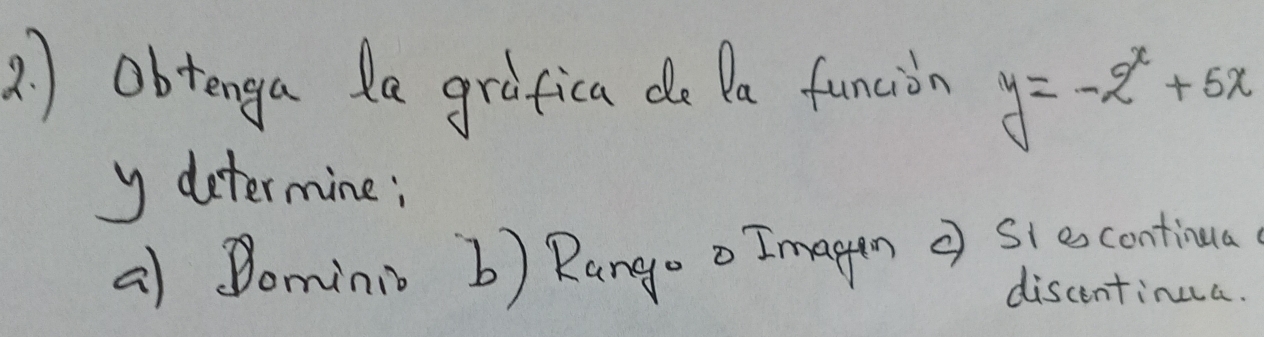 2.) Obtenga la gràfica de la funciòn y = -2ˣ + 5x
y determine;
a) Dominio b) Rango o Imagen c) Si es continua
discontinua.